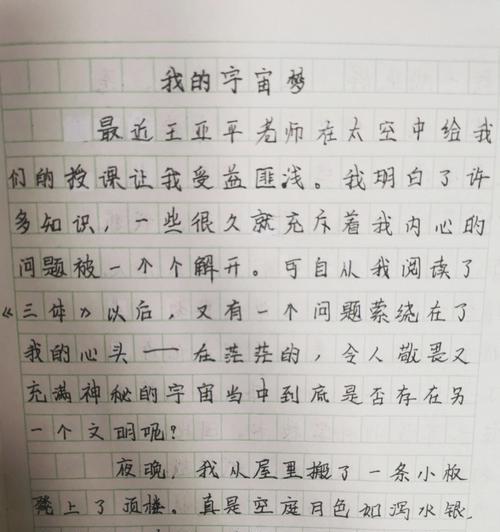 我的宇宙梦
最近王亚平老师在太空中给我
们的授课让我受益匪浅。我明白了许
多知识，一些很久就充斥着我内心的
问题被一个个解开。可自从我阅读了
《三体》以后，又有一个问题萦绕在了
我的心头——在茫茫的，令人敬畏又
充满神秘的宇宙当中到底是否存在另
一个文明呢？
夜晚，我从屋里搬了一条小板
凳上了顶楼。真是空庭月色如泻水银